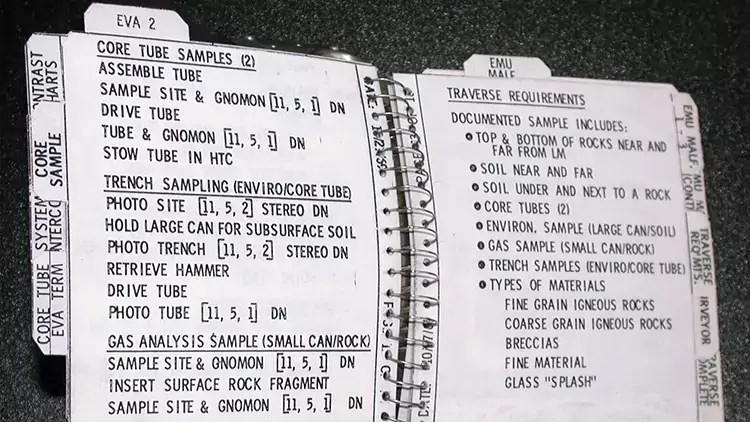 EVA 2
CORE TUBE SAMPLES (2)
ASSEMBLE TUBE
SAMPLE SITE & GNOMON [11, 5, 1] DN
DRIVE TUBE
TUBE & GNOMON [11, 5, 1] DN
STOW TUBE IN HTC
TRENCH SAMPLING (ENVIRO/CORE TUBE)
PHOTO SITE [11, 5, 2] STEREO DN
HOLD LARGE CAN FOR SUBSURFACE SOIL
PHOTO TRENCH [11, 5, 2] STEREO DN
RETRIEVE HAMMER
DRIVE TUBE
PHOTO TUBE [11, 5, 1] DN
GAS ANALYSIS SAMPLE (SMALL CAN/ROCK)
SAMPLE SITE & GNOMON [11, 5, 1] DN
INSERT SURFACE ROCK FRAGMENT
SAMPLE SITE & GNOMON [11, 5, 1] DN
NTRAST
HARTS
CORE
SAMPLE
CORE TUBE SYSTEM
EVA TERM NTERCO
EMU
MALF
TRAVERSE REQUIREMENTS
DOCUMENTED SAMPLE INCLUDES:
• TOP & BOTTOM OF ROCKS NEAR AND
FAR FROM LM
• SOIL NEAR AND FAR
• SOIL UNDER AND NEXT TO A ROCK
• CORE TUBES (2)
• ENVIRON. SAMPLE (LARGE CAN/SOIL)
• GAS SAMPLE (SMALL CAN/ROCK)
• TRENCH SAMPLES (ENVIRO/CORE TUBE)
• TYPES OF MATERIALS
FINE GRAIN IGNEOUS ROCKS
COARSE GRAIN IGNEOUS ROCKS
BRECCIAS
FINE MATERIAL
GLASS "SPLASH"
EMU MALF.
1 - 3
(CONT)
TRAVERSE
REQMTS.
RVEYOR